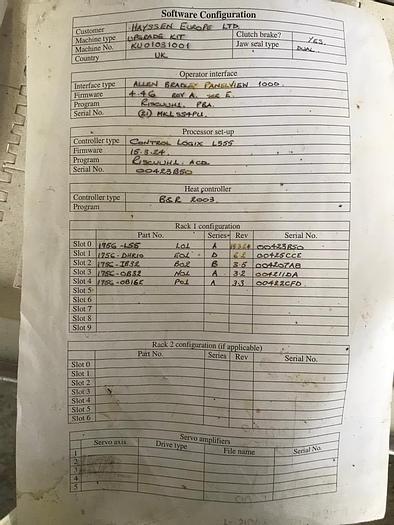 Software Configuration
Customer HAYSSEN EUROPE LTD. Clutch brake? YES.
Machine type UPGRADE KIT Jaw seal type DUAL.
Machine No. KU01031001
Country UK
Operator interface
Interface type ALLEN BRADLEY PANELVIEW 1000.
Firmware 4.46 REV A. E.
Program PBA.
Serial No.
Processor set-up
Controller type CONTROL LOGIX L555
Firmware 15.3.24.
Program ACD.
Serial No. 00423B50
Heat controller
Controller type B&R 2003.
Program
Rack 1 configuration
Part No. Series Rev Serial No.
Slot 0 1756-L55 A 00423B50
Slot 1 1756-DHRIO D 6.2 00425CCE
Slot 2 1756-IB32 B 3.5 004207AB
Slot 3 1756-OB32 A 3.2 004211DA
Slot 4 1756-OB16E A 3.3 00422CFD
Slot 5
Slot 6
Slot 7
Slot 8
Slot 9
Rack 2 configuration (if applicable)
Part No. Series Rev Serial No.
Slot 0
Slot 1
Slot 2
Slot 3
Slot 4
Slot 5
Slot 6
Servo amplifiers
Servo axis Drive type File name Serial No.
1
2
3
4
5